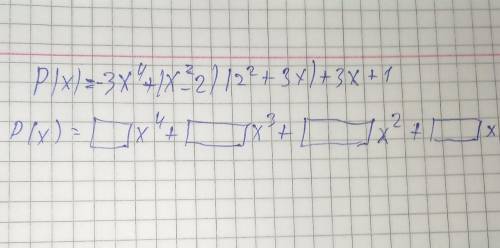 P(x)=-3x⁴+(x²-2)(2²+3x)+3x+1
P(x)=□x⁴+□x³+□x²+□x